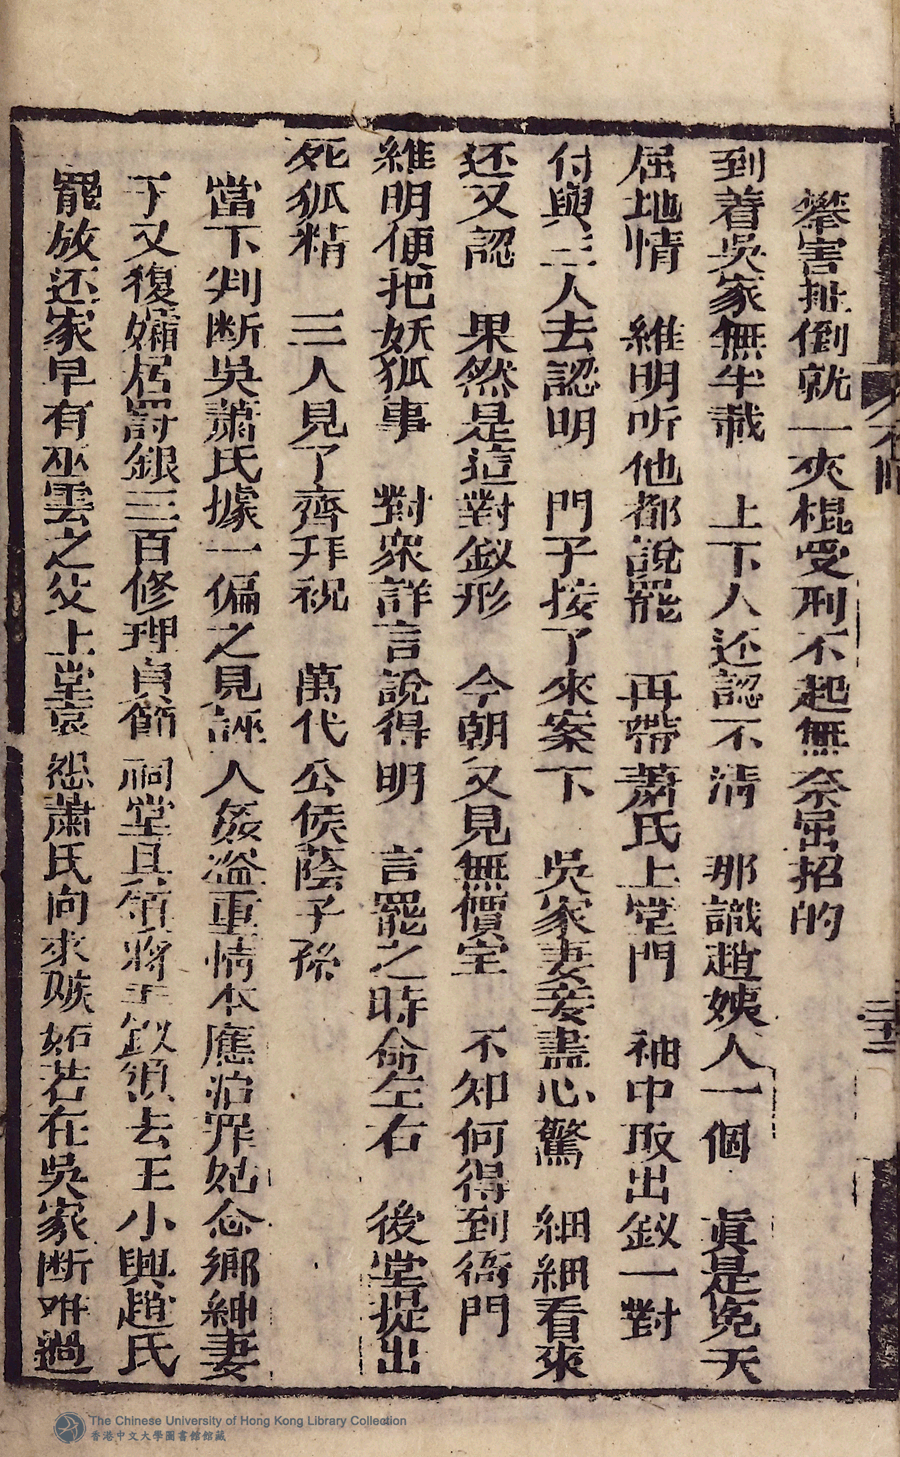 攀害扯倒就一夾棍受刑不起無奈屈招的
到着吳家無半載　上下人还認不清　那識趙姨人一個　真是冤天
屈地情　維明听他都說罷　再帶蕭氏上堂門　袖中取出釵一對
付與三人去認明　門子接了來案下　吳家妻妾盡心驚　細細看來
还又認　果然是這對釵形　今朝又見無價宝　不知何得到衙門
維明便把妖狐事　對衆詳言說得明　言罷之時命左右　後堂提出
死狐精　三人見了齊拜祝　萬代公侯蔭子孫
當下判断吳蕭氏據一偏之見誣人姦盜重情本應治罪姑念鄉紳妻
子又復孀居罰銀三百修理貞節祠堂具領將玉釵領去王小與趙氏
罷放还家早有巫雲之父上堂哀怨蕭氏向來嫉妬若在吳家断难過
The Chinese University of Hong Kong Library Collection
香港中文大學圖書館館藏